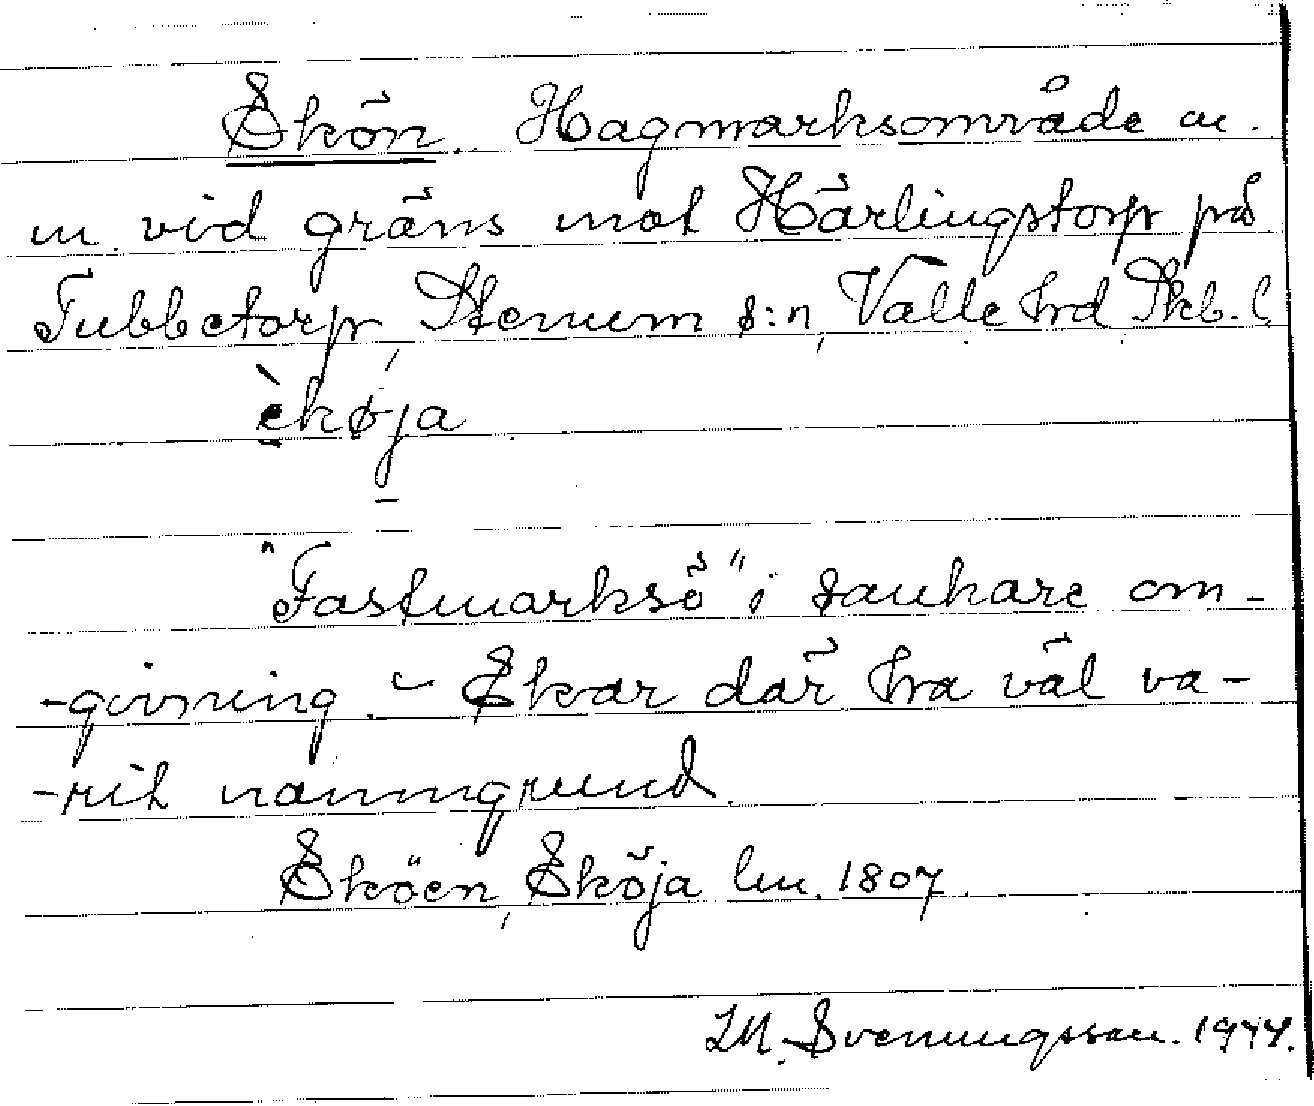 Ekön. Hagmarksområde m.
m. vid gräns mot Härlingstorp på
Tubbetorp, Stenum s:n, Valle hrd Skb. l.
èkøja
"Fastmarksö" i sankare om-
-givning - Ekar där ha väl va-
-rit namngrund.
Eköen, Eköja lm. 1807.
M. Svenungsson. 1944.